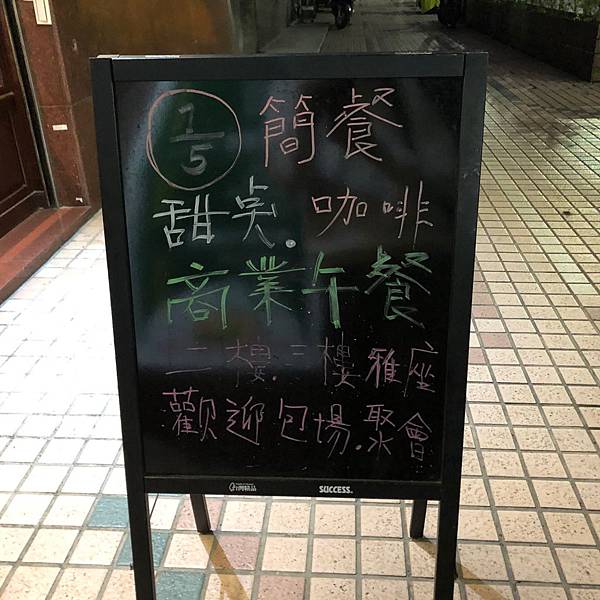 1/5 簡餐
甜点.咖啡
商業午餐
二樓.三樓雅座
歡迎包場.聚會
SUCCESS